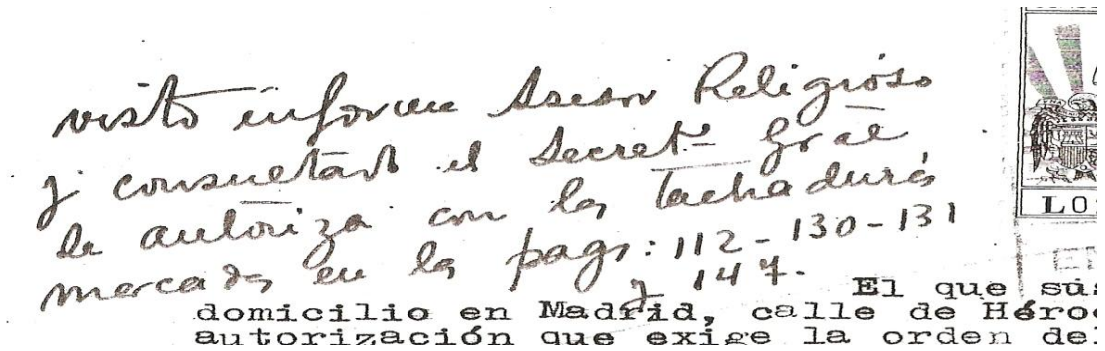 visto informe Asesor Religioso
y consultado el Secretº Gral
se autoriza con las tachaduras
marcadas en las pags: 112 - 130 - 131
y 147.
LO
El que sus
domicilio en Madrid, calle de Héroe
autorización que exige la orden del